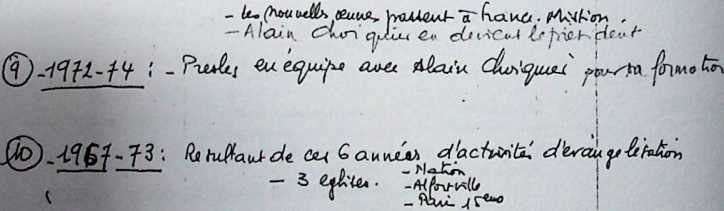 - Les nouvelles œuvres passent à France-Mission.
- Alain Choiquier en devient le président
⑨ - 1972-74 : - Presles en équipe avec Alain Choiquier pour sa formation
⑩ - 1967-73 : Resultant de ces 6 années d'activités d'évangelisation
- 3 eglises. - Nation
- Alfortville
- Paris 15eme